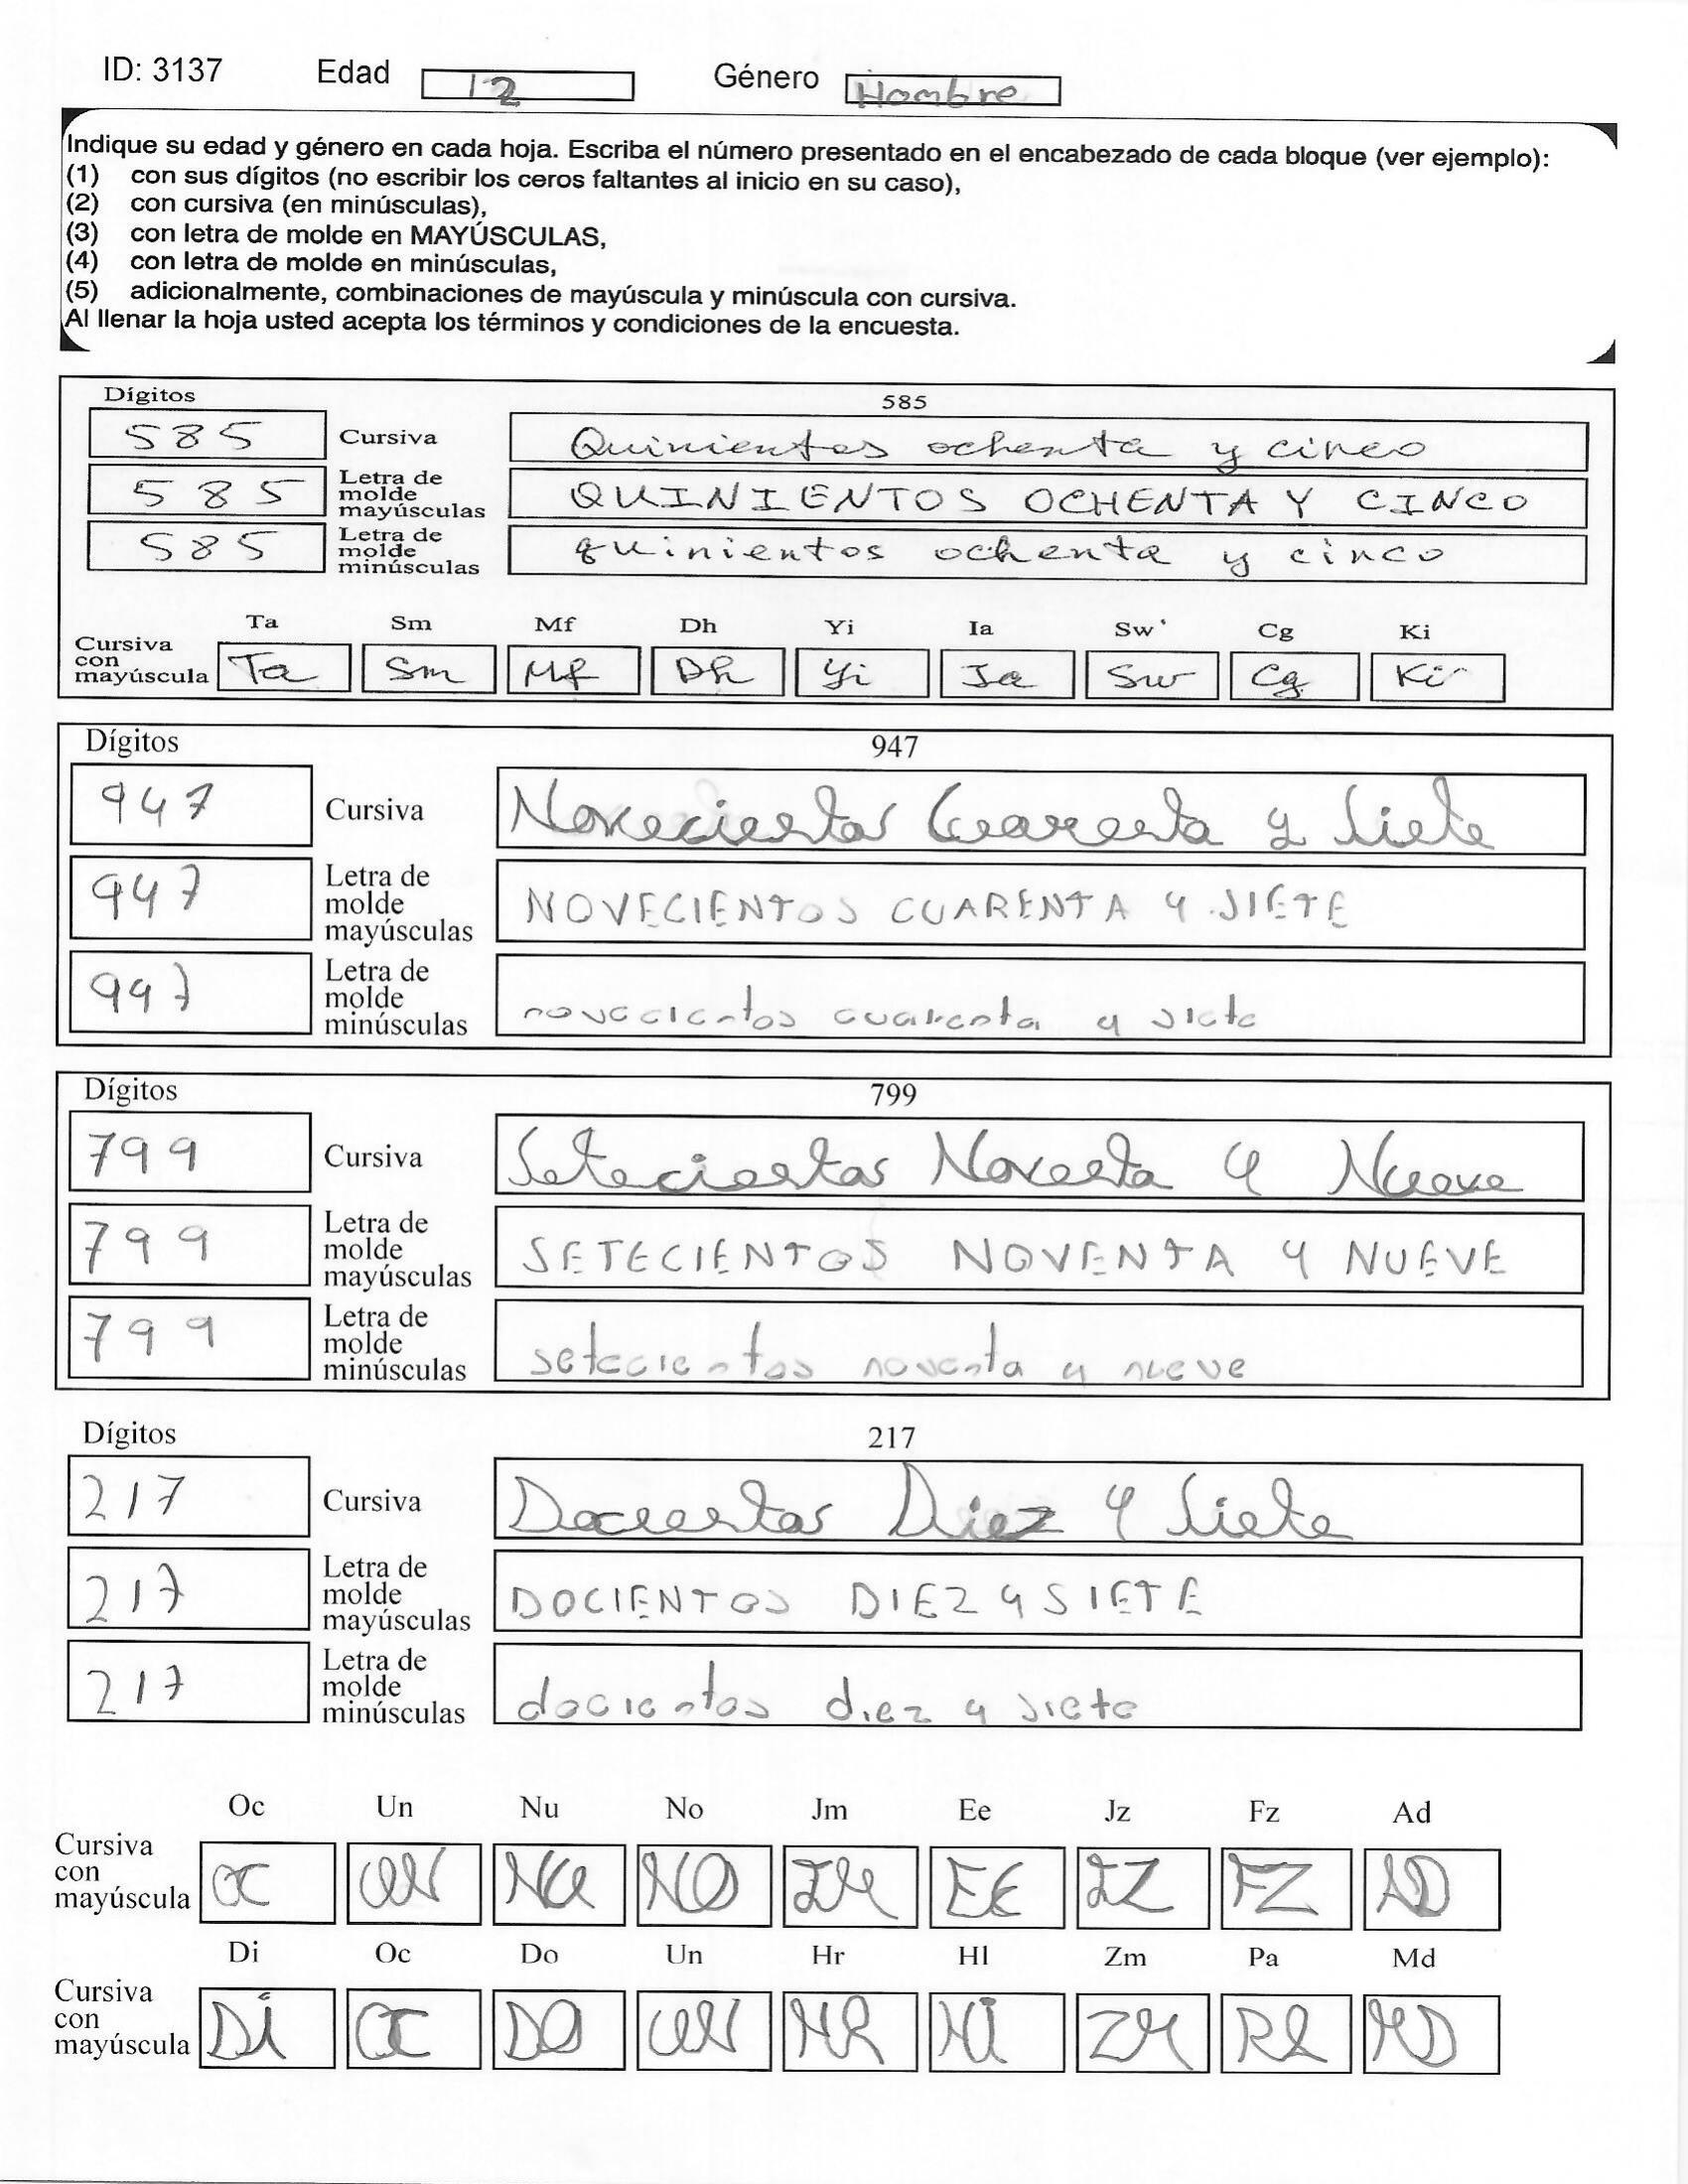 ID: 3137 Edad 12 Género Hombre
Indique su edad y género en cada hoja. Escriba el número presentado en el encabezado de cada bloque (ver ejemplo):
(1) con sus dígitos (no escribir los ceros faltantes al inicio en su caso),
(2) con cursiva (en minúsculas),
(3) con letra de molde en MAYÚSCULAS,
(4) con letra de molde en minúsculas,
(5) adicionalmente, combinaciones de mayúscula y minúscula con cursiva.
Al llenar la hoja usted acepta los términos y condiciones de la encuesta.
Dígitos 585
585 Cursiva Quinientos ochenta y cinco
585 Letra de molde mayúsculas QUINIENTOS OCHENTA Y CINCO
585 Letra de molde minúsculas quinientos ochenta y cinco
Ta Sm Mf Dh Yi Ia Sw Cg Ki
Cursiva con mayúscula Ta Sm Mf Dh Yi Ia Sw Cg Ki
Dígitos 947
947 Cursiva Novecientos Cuarenta y Siete
947 Letra de molde mayúsculas NOVECIENTOS CUARENTA Y SIETE
947 Letra de molde minúsculas novecientos cuarenta y siete
Dígitos 799
799 Cursiva Setecientos Noventa Y Nueve
799 Letra de molde mayúsculas SETECIENTOS NOVENTA Y NUEVE
799 Letra de molde minúsculas setecientos noventa y nueve
Dígitos 217
217 Cursiva Docientos Diez Y Siete
217 Letra de molde mayúsculas DOCIENTOS DIEZ Y SIETE
217 Letra de molde minúsculas docientos diez y siete
Oc Un Nu No Jm Ee Jz Fz Ad
Cursiva con mayúscula OC UN NU NO JM EE JZ FZ AD
Di Oc Do Un Hr Hl Zm Pa Md
Cursiva con mayúscula Di OC DO UN HR Hi ZM MD